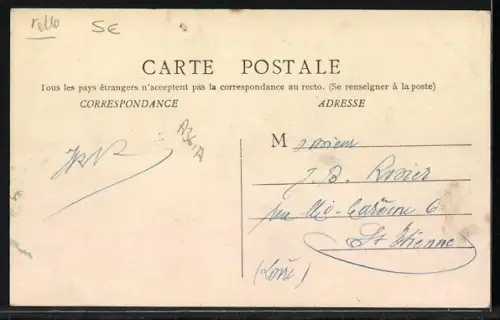 5E
CARTE POSTALE
Tous les pays étrangers n'acceptent pas la correspondance au recto. (Se renseigner à la poste)
CORRESPONDANCE
ADRESSE
A36,A
Monsieur
J. B. Rivier
6
St Etienne
(Loire)